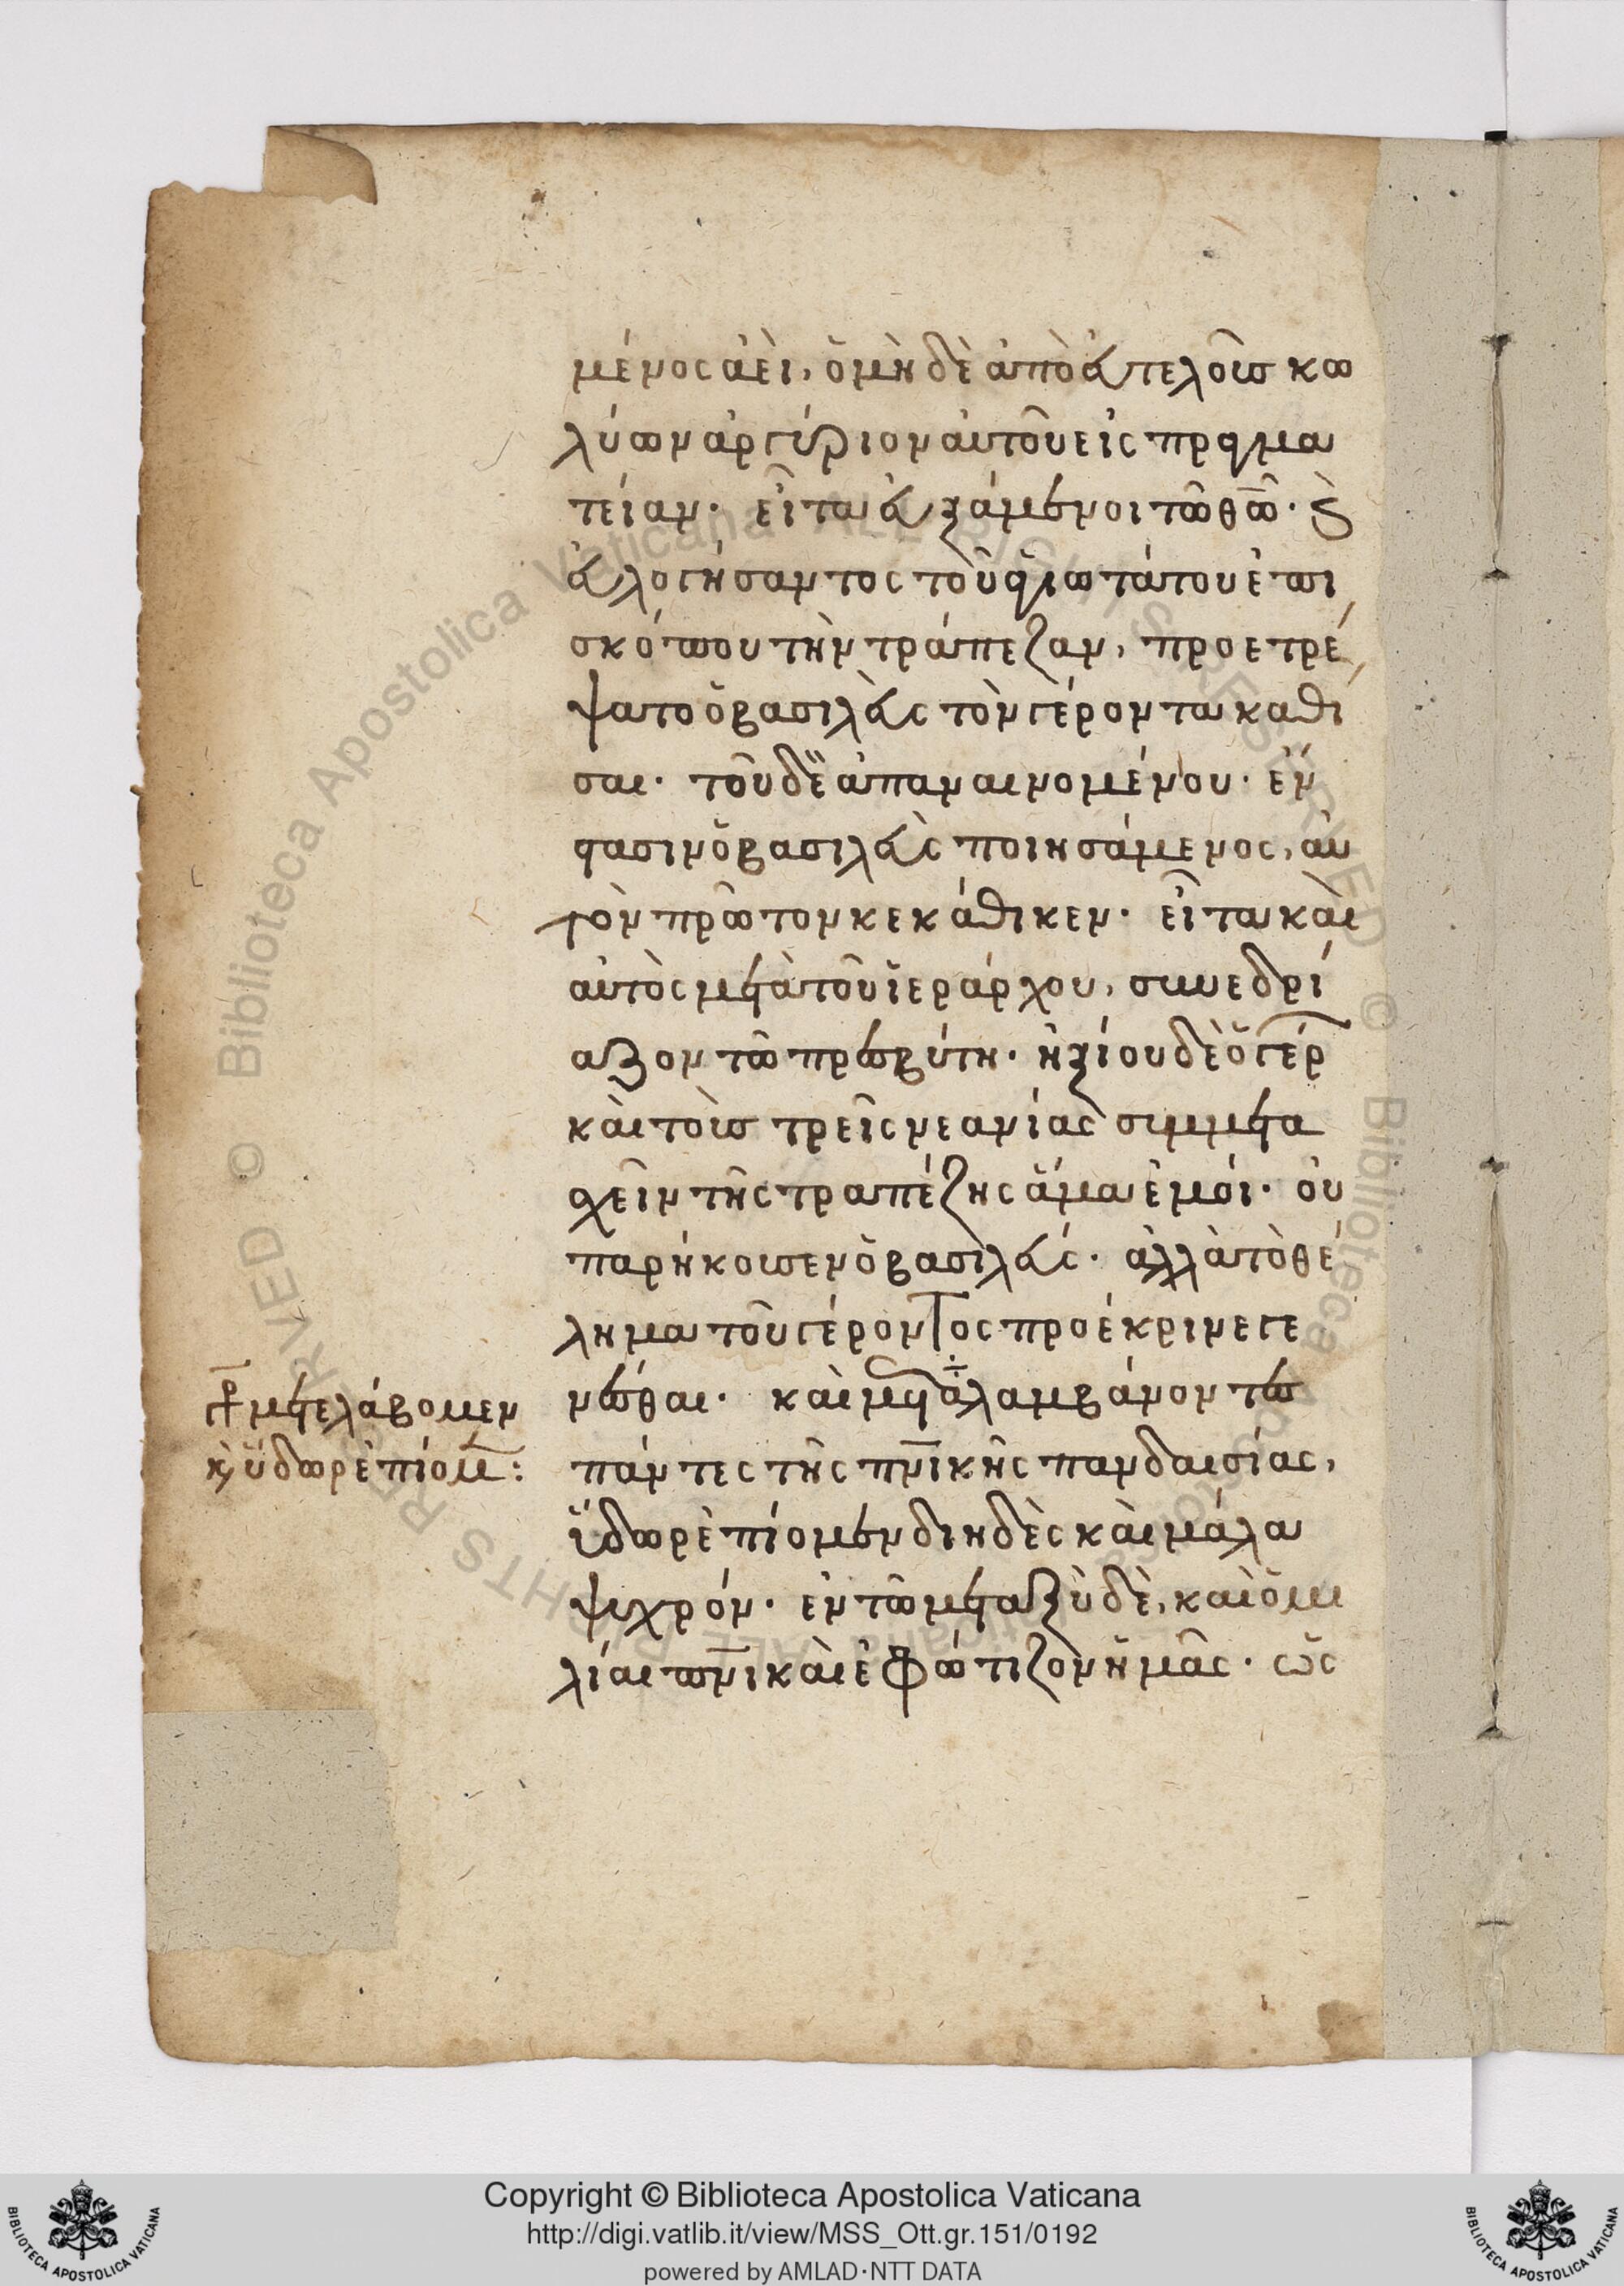 μένος ἀεὶ, ὁ μὴ δὲ ἀπὸ εὐτελοῦς κω
λύων ἀργύριον αὐτοῦ εἰς πραγμα
τείαν. εἶτα εὐξάμενοι τῶ θῶ. καὶ
εὐλογήσαντος τοῦ ἁγιωτάτου ἐπι
σκόπου τὴν τράπεζαν, προετρέ
ψατο ὁ βασιλεὺς τὸν γέροντα καθί
σαι. τοῦ δὲ ἀπαναινομένου. ἔν
στασιν ὁ βασιλεὺς ποιησάμενος, αὐ
τὸν πρῶτον κεκάθικεν. εἶτα καὶ
αὐτὸς μετὰ τοῦ ἱεράρχου, συνεδρί
αζον τῶ πρεσβύτη. ἠξίου δὲ ὁ γέρ
καὶ τοὺς τρεῖς νεανίας συμμετα
σχεῖν τῆς τραπέζης ἅμα ἐμοί. οὐ
παρήκουσεν ὁ βασιλεύς. ἀλλὰ τὸ θέ
λημα τοῦ γέροντος προέκρινε γε
νέσθαι. καὶ μεταλαμβάνοντες
πάντες τῆς πνικῆς πανδαισίας,
ὕδωρ ἐπίομεν διηδὲς καὶ μάλα
ψυχρόν. ἐν τῶ μεταξὺ δὲ, καὶ ὁμι
λίαι πνικαὶ ἐφώτιζον ἡμᾶς. ὡς
μετελάβομεν
κ ὕδωρ ἐπίομ:
Copyright © Biblioteca Apostolica Vaticana
http://digi.vatlib.it/view/MSS_Ott.gr.151/0192
powered by AMLAD·NTT DATA
BIBLIOTECA APOSTOLICA VATICANA
BIBLIOTECA APOSTOLICA VATICANA